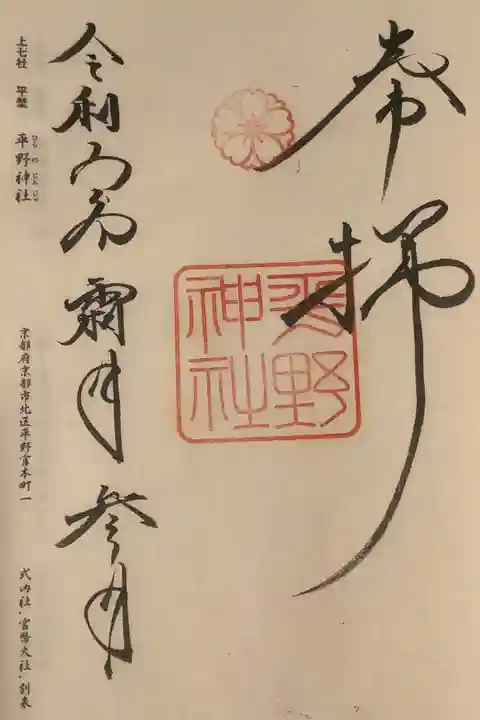 奉拝
平野
神社
令和四年 霜月 参日
上七社 平埜 平野神社
ひらのじんじゃ
京都府京都市北区平野宮本町一
式内社・官幣大社・別表